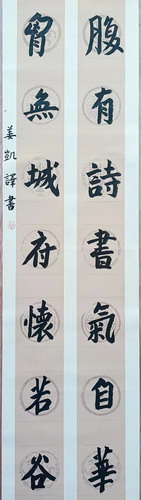 腹有詩書氣自華
胷無城府懷若谷
姜凱譯書